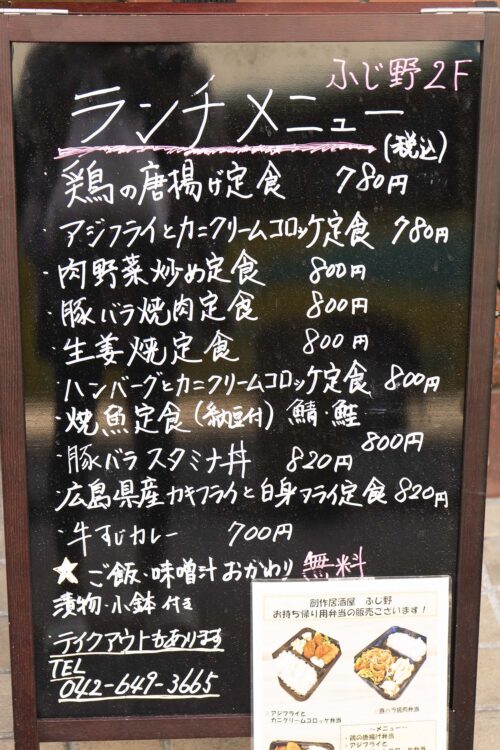 ふじ野2F
ランチメニュー
(税込)
鶏の唐揚げ定食 780円
・アジフライとカニクリームコロッケ定食 780円
・肉野菜炒め定食 800円
・豚バラ焼肉定食 800円
・生姜焼定食 800円
・ハンバーグとカニクリームコロッケ定食 800円
・焼魚定食(納豆付) 鯖・鮭 800円
・豚バラスタミナ丼 820円
・広島県産カキフライと白身フライ定食 820円
・牛すじカレー 700円
★ご飯・味噌汁おかわり無料
漬物・小鉢付き
・テイクアウトもあります
TEL
042-649-3665
創作居酒屋 ふじ野
お持ち帰り用弁当の販売ございます!
○アジフライと
カニクリームコロッケ弁当
○豚バラ焼肉弁当
~メニュー~
・鶏の唐揚げ弁当
・アジフライと